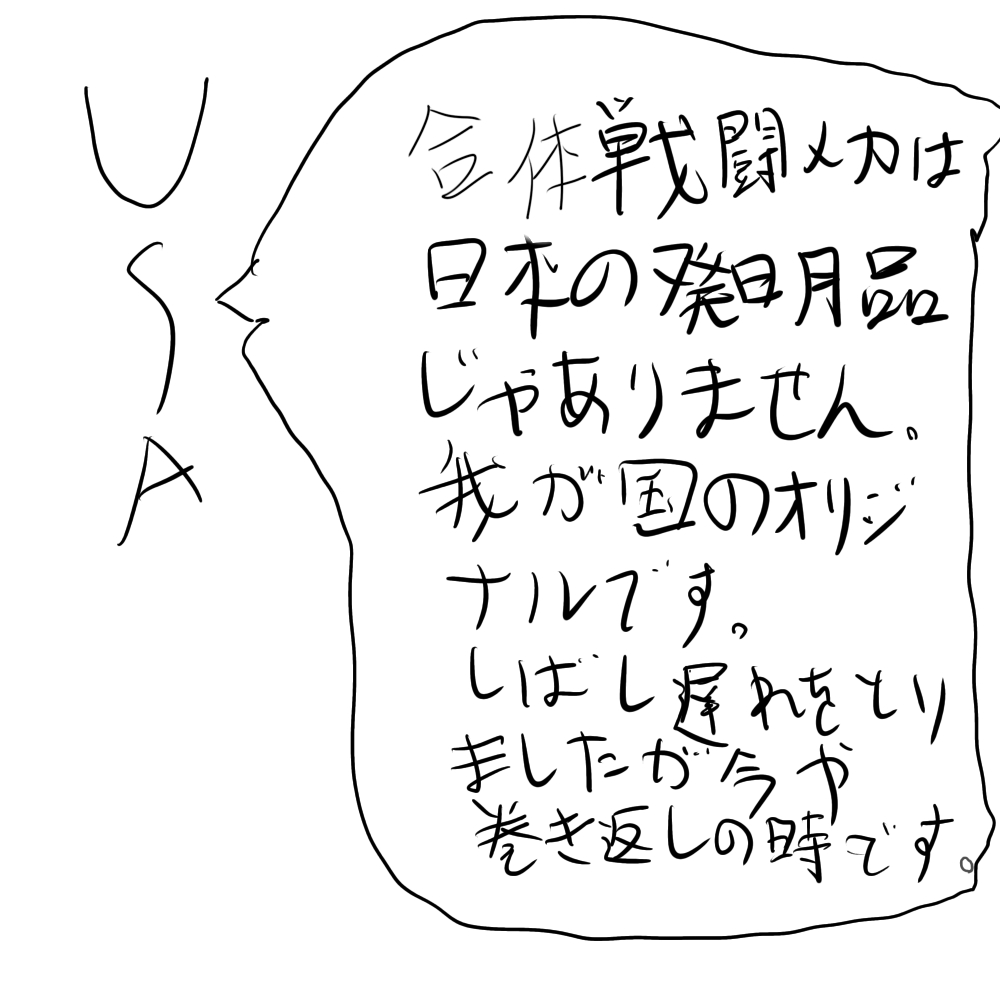 USA
合体戦闘メカは
日本の発明品
じゃありません。
我が国のオリジ
ナルです。
しばし遅れをとり
ましたが今や
巻き返しの時です。